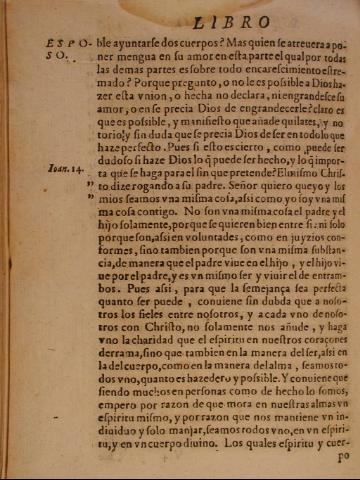 LIBRO
ESPO-
SO.
ble ayuntarse dos cuerpos? Mas quien se atreuera a po-
ner mengua en su amor en esta parte el qual por todas
las demas partes es sobre todo encarescimiento estre-
mado? Porque pregunto, o no le es possible a Dios ha-
zer esta vnion, o hecha no declara, ni engrandesce su a-
mor, o en se precia Dios de engrandecerle? claro es
que es possible, y manifiesto que añade quilates, y no
torio! y sin duda que se precia Dios de ser en todo lo que
haze perfecto. Pues si esto es cierto, como puede ser
dudoso si haze Dios lo q̃ puede ser hecho, y lo q̃ impor-
Ioan. 14.
ta que se haga para el fin que pretende? El mismo Chris-
to dize rogando a su padre. Señor quiero que yo y los
” mios seamos vna misma cosa, assi como yo soy vna mis
” ma cosa contigo. No son vna misma cosa el padre y el
hijo solamente, porque se quieren bien entre si: ni solo
porque son, assi en voluntades, como en juyzios con-
formes, sino tambien porque son vna misma substan-
cia, de manera que el padre viue en el hijo, y el hijo vi-
ue por el padre, y es vn mismo ser y viuir el de entram-
bos. Pues assi, para que la semejança sea perfecta
quanto ser puede, conuiene sin dubda que a noso-
tros los fieles entre nosotros, y a cada vno de noso-
tros con Christo, no solamente nos añude, y haga
vno la charidad que el espiritu en nuestros coraçones
derrama, sino que tambien en la manera del ser, assi en
la del cuerpo, como en la manera del alma, seamos to-
dos vno, quanto es hazedero y possible. Y conuiene que
siendo muchos en personas como de hecho lo somos,
empero por razon de que mora en nuestras almas vn
espiritu mismo, y por razon que nos mantiene vn in-
diuiduo y solo manjar, seamos todos vno, en vn espiri-
tu, y en vn cuerpo diuino. Los quales espiritu y cuer-
po